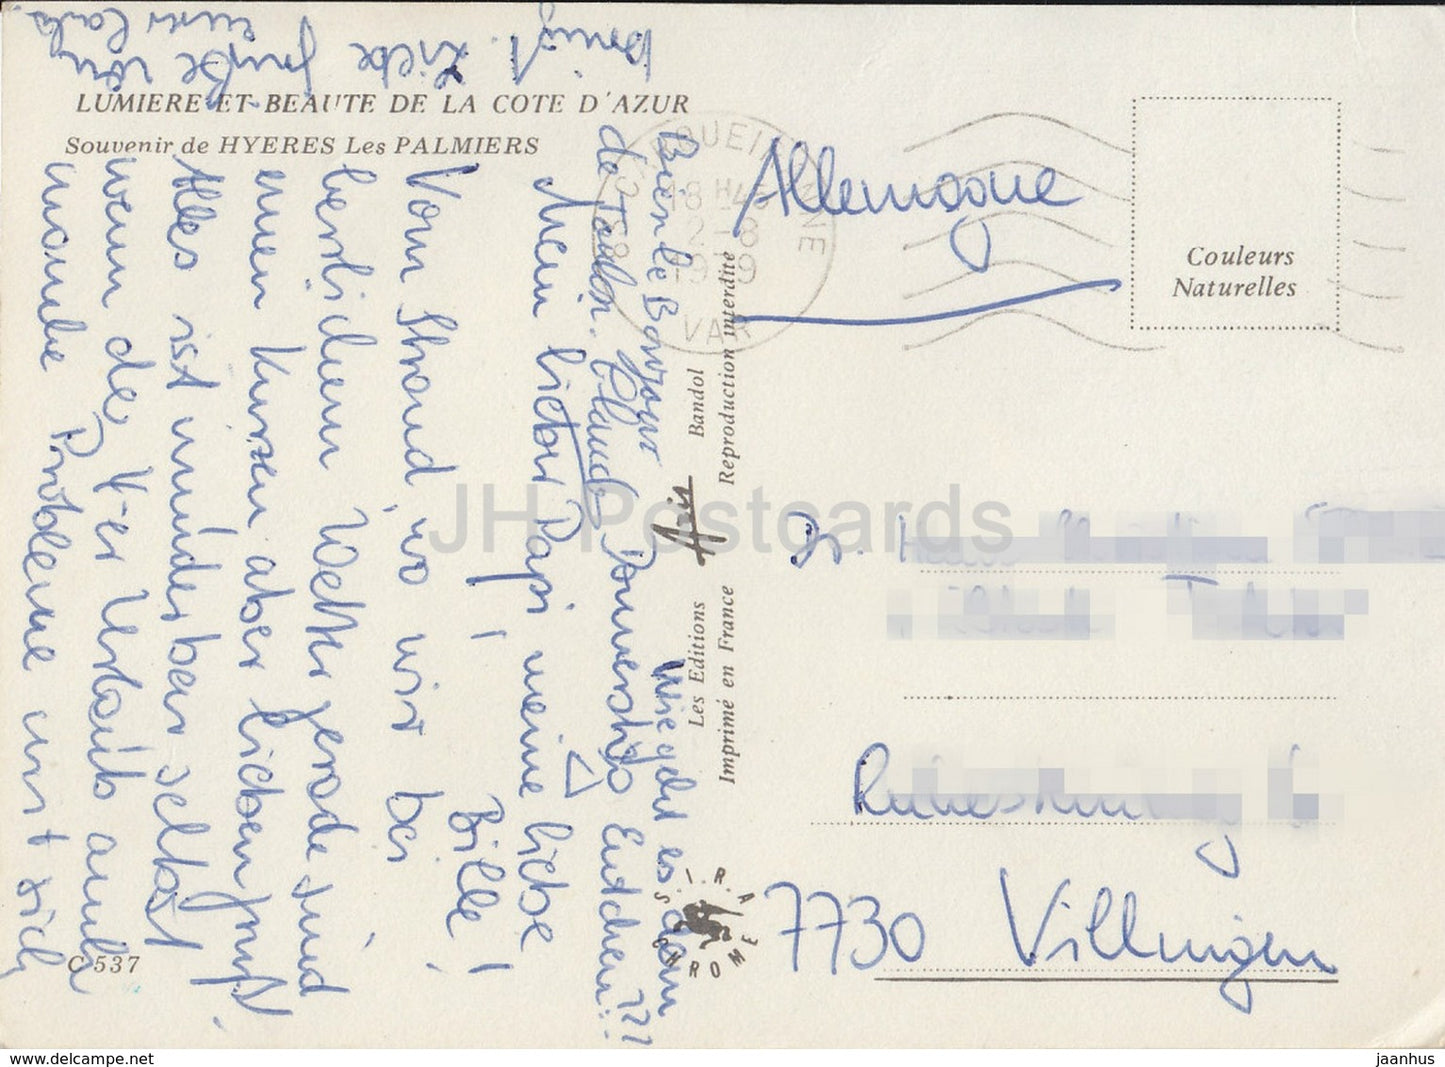 LUMIERE ET BEAUTE DE LA COTE D'AZUR
Souvenir de HYERES Les PALMIERS
Mein lieber Papi, meine liebe
Bille!
Vom Strand, wo wir bei
herrlichem Wetter gerade sind
einen kurzen aber lieben Gruß!
Alles ist wunderbar selbst
wenn der 4-er Urlaub auch
manche Probleme mit sich
bringt. Liebe Grüße von
eurer
Bien le Bonjour
de Toulon. Claude
Wie geht es dem
Entchen???
18 H 45
2-8
1979
VAR
Allemagne
Couleurs
Naturelles
Les Editions Aris Bandol
Imprimé en France Reproduction interdite
Dr.
7730 Villingen
I.R.A
CHROME
C 537
JH Postcards
www.delcampe.net
jaanhus